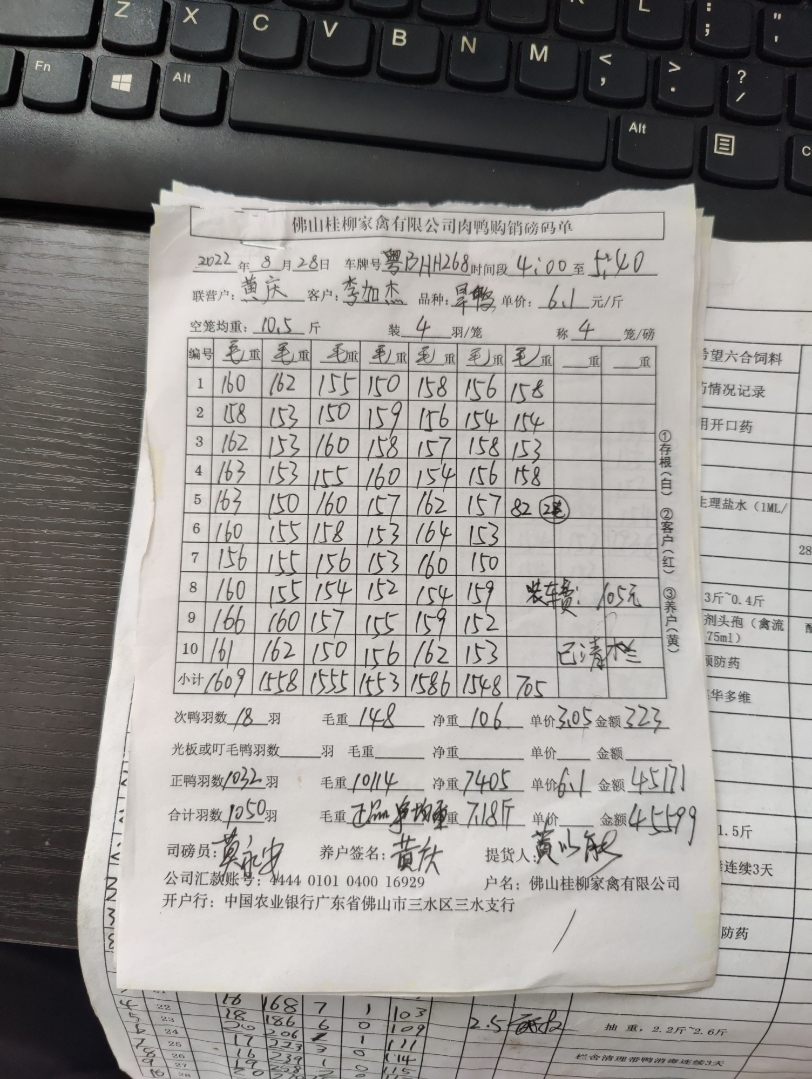 Z X C V B N M < , > . ? / : ; " '
Fn Alt Alt
佛山桂柳家禽有限公司肉鸭购销磅码单
2022 年 8 月 28 日 车牌号 粤BHH268 时间段 4:00 至 5:40
联营户: 黄庆 客户: 李加杰 品种: 旱鸭 单价: 6.1 元/斤
空笼均重: 10.5 斤 装 4 羽/笼 称 4 笼/磅
编号 毛重 毛重 毛重 毛重 毛重 毛重 毛重 重 重
1 160 162 155 150 158 156 158
2 158 153 150 159 156 154 154
3 162 153 160 158 157 158 153
4 163 153 155 160 154 156 158
5 163 150 160 157 162 157 82 2笼
6 160 155 158 153 164 153
7 156 155 156 153 160 150
8 160 155 154 152 154 159 装车费: 105元
9 166 160 157 155 159 152
10 161 162 150 156 162 153 已清栏
小计 1609 1558 1555 1553 1586 1548 705
①存根(白) ②客户(红) ③养户(黄)
次鸭羽数 18 羽 毛重 148 净重 106 单价 3.05 金额 323
光板或叮毛鸭羽数 羽 毛重 净重 单价 金额
正鸭羽数 1032 羽 毛重 10114 净重 7405 单价 6.1 金额 45171
合计羽数 1050 羽 毛重 正品净均重 重 7.18斤 金额 45599
司磅员: 养户签名: 黄庆 提货人:
公司汇款账号: 4444 0101 0400 16929 户名: 佛山桂柳家禽有限公司
开户行: 中国农业银行广东省佛山市三水区三水支行
希望六合饲料
药情况记录
用开口药
生理盐水(1ML/
28
3斤~0.4斤
剂头孢(禽流
75ml)
预防药
华多维
1.5斤
连续3天
防药
16 168 7 1 103
18 186 6 0 109
2.5
抽 重: 2.2斤~2.6斤
栏舍清理带鸭消毒连续3天